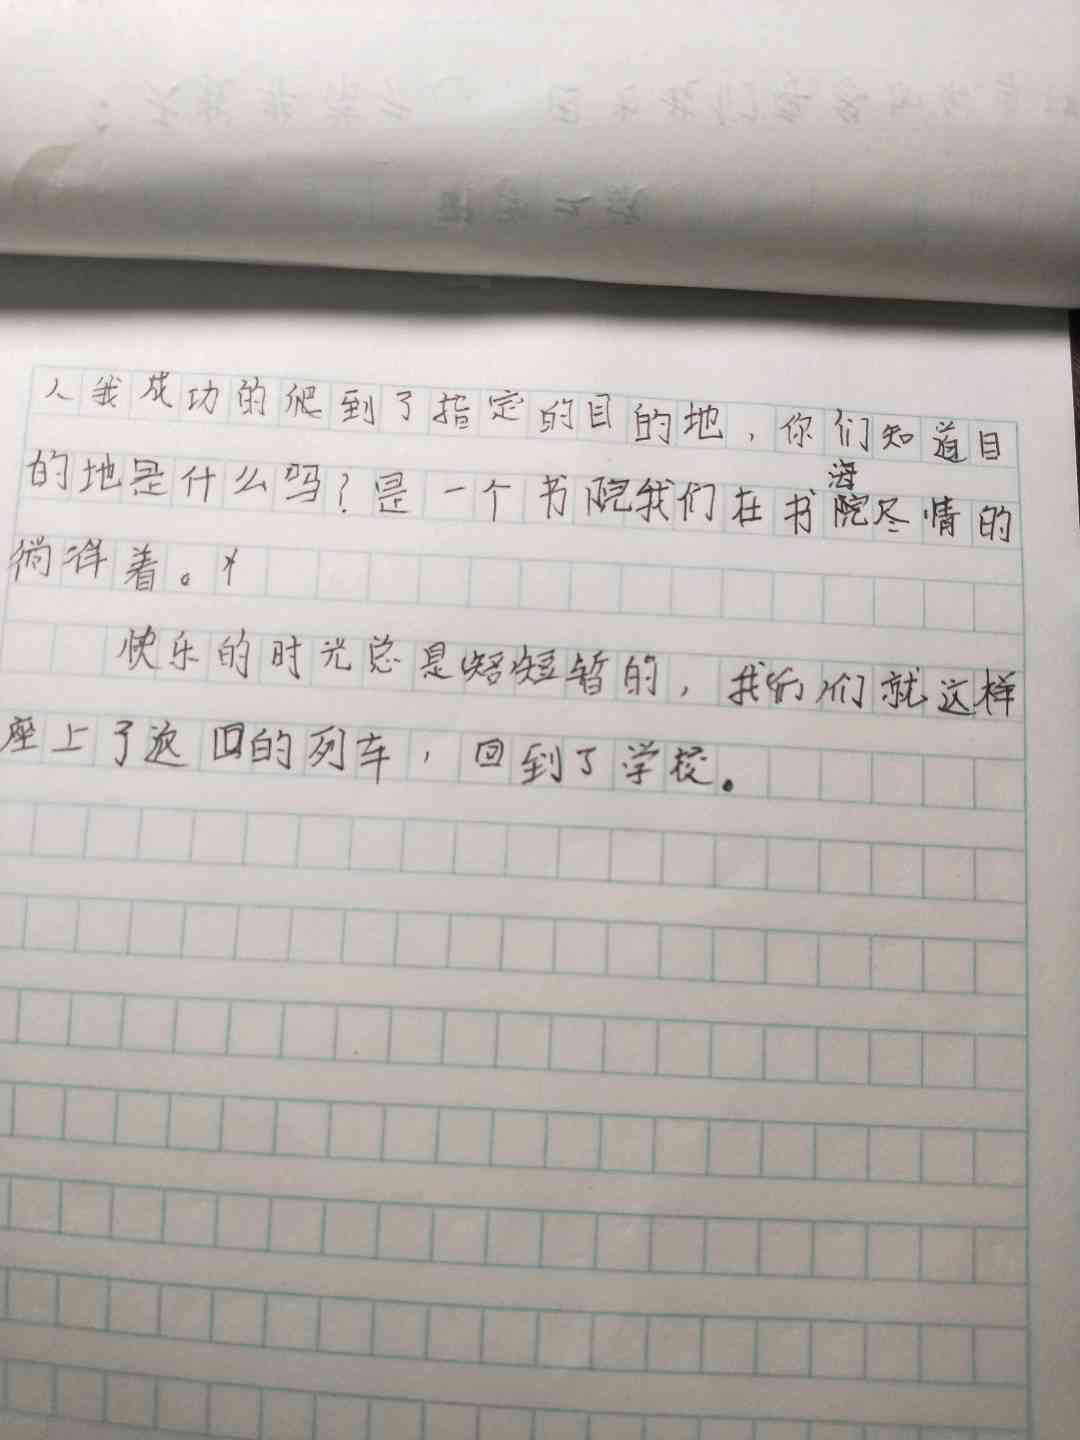 人我成功的爬到了指定的目的地,你们知道目
的地是什么吗?是一个书院我们在书海院尽情的
徜洋着。
快乐的时光总是短短暂的,我们们就这样
座上了返回的列车,回到了学校。